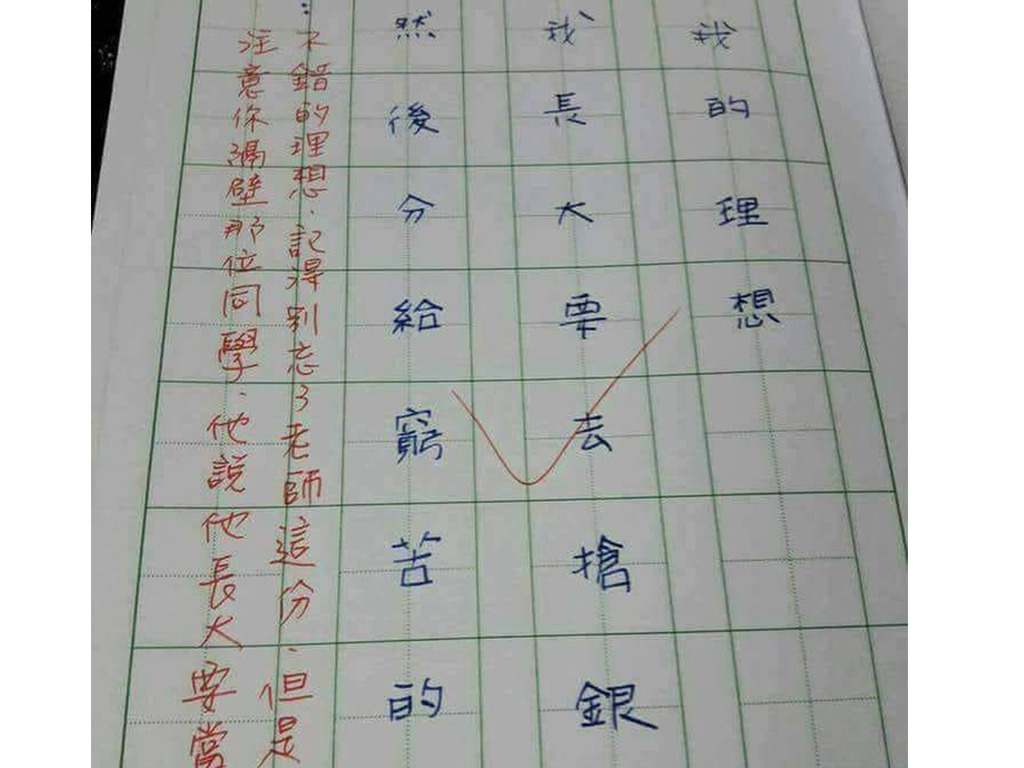 我的理想
我長大要去搶銀
然後分給窮苦的
：不錯的理想．記得別忘了老師這份．但是
注意你隔壁那位同學．他說他長大要當